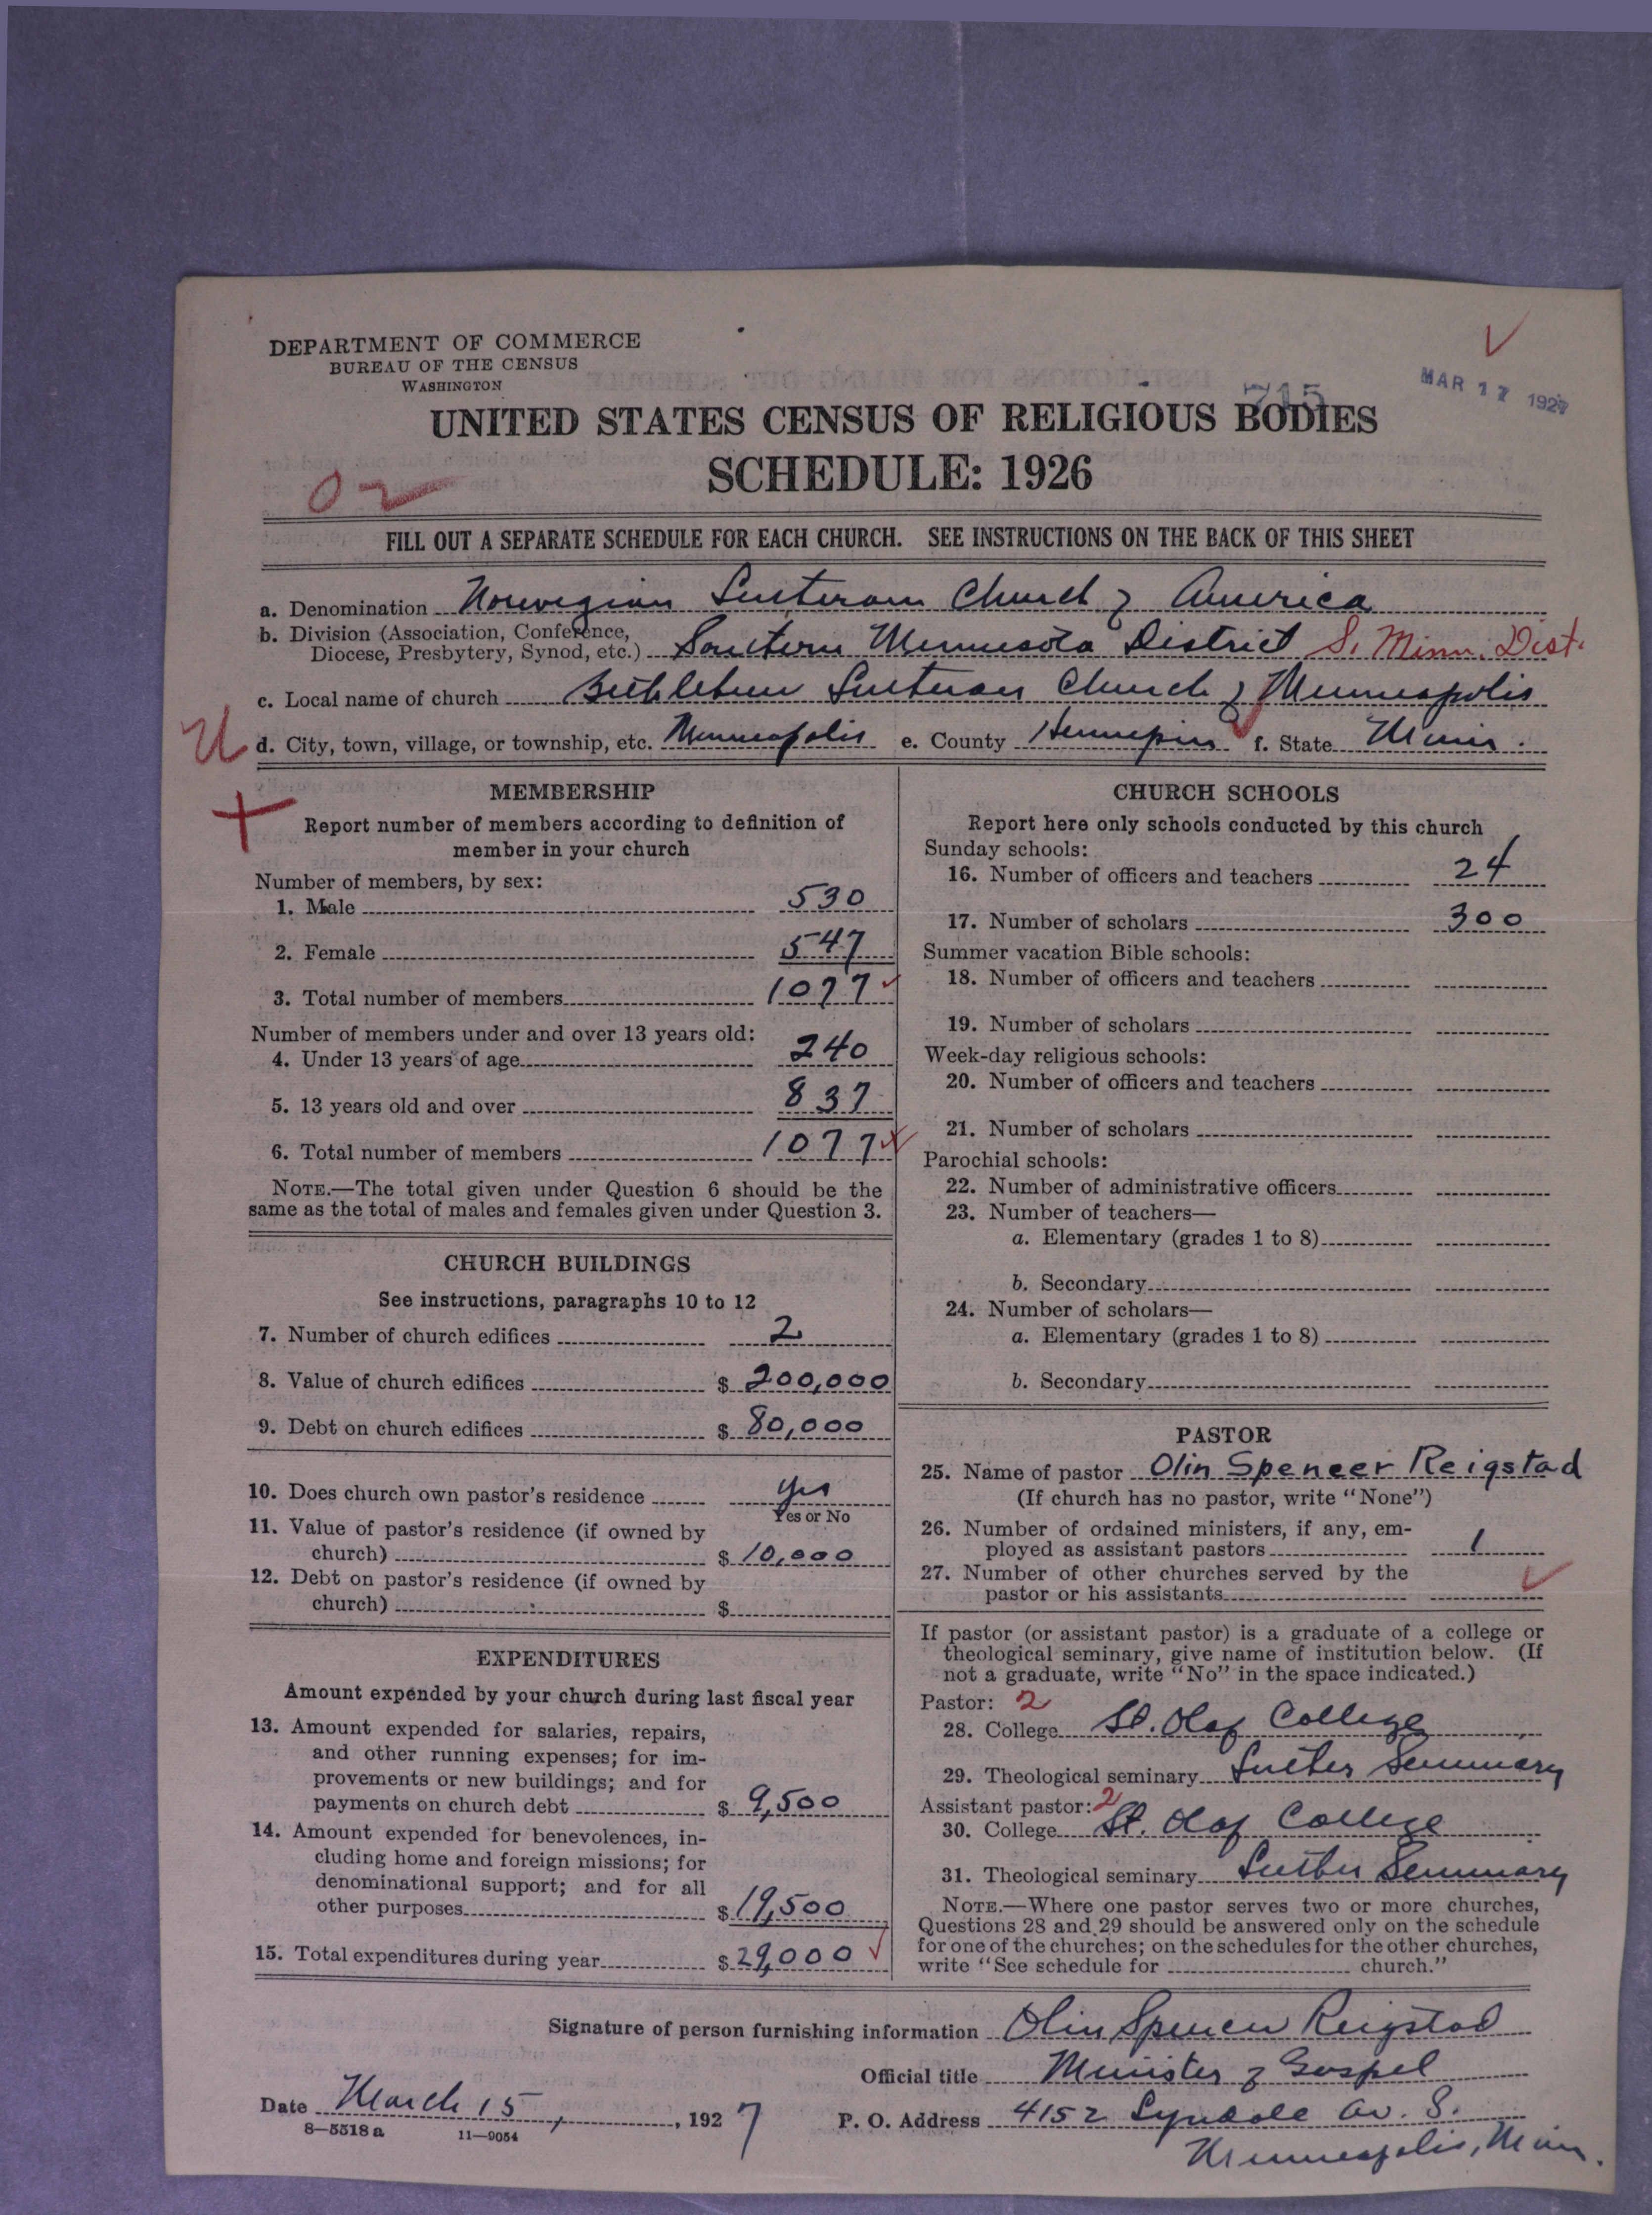 DEPARTMENT OF COMMERCE
BUREAU OF THE CENSUS
WASHINGTON
715
MAR 17 1927
UNITED STATES CENSUS OF RELIGIOUS BODIES
SCHEDULE: 1926
02
FILL OUT A SEPARATE SCHEDULE FOR EACH CHURCH. SEE INSTRUCTIONS ON THE BACK OF THIS SHEET
a. Denomination Norwegian Lutheran Church of America
b. Division (Association, Conference, Diocese, Presbytery, Synod, etc.) Southern Minnesota District S. Minn. Dist.
c. Local name of church Bethlehem Lutheran Church of Minneapolis
d. City, town, village, or township, etc. Minneapolis e. County Hennepin f. State Minn.
MEMBERSHIP
Report number of members according to definition of
member in your church
Number of members, by sex:
1. Male 530
2. Female 547
3. Total number of members 1077
Number of members under and over 13 years old:
4. Under 13 years of age 240
5. 13 years old and over 837
6. Total number of members 1077
NOTE.—The total given under Question 6 should be the
same as the total of males and females given under Question 3.
CHURCH BUILDINGS
See instructions, paragraphs 10 to 12
7. Number of church edifices 2
8. Value of church edifices $ 200,000
9. Debt on church edifices $ 80,000
10. Does church own pastor's residence yes
Yes or No
11. Value of pastor's residence (if owned by
church) $ 10,000
12. Debt on pastor's residence (if owned by
church) $
EXPENDITURES
Amount expended by your church during last fiscal year
13. Amount expended for salaries, repairs,
and other running expenses; for im-
provements or new buildings; and for
payments on church debt $ 9,500
14. Amount expended for benevolences, in-
cluding home and foreign missions; for
denominational support; and for all
other purposes $ 19,500
15. Total expenditures during year $ 29,000
CHURCH SCHOOLS
Report here only schools conducted by this church
Sunday schools:
16. Number of officers and teachers 24
17. Number of scholars 300
Summer vacation Bible schools:
18. Number of officers and teachers
19. Number of scholars
Week-day religious schools:
20. Number of officers and teachers
21. Number of scholars
Parochial schools:
22. Number of administrative officers
23. Number of teachers—
a. Elementary (grades 1 to 8)
b. Secondary
24. Number of scholars—
a. Elementary (grades 1 to 8)
b. Secondary
PASTOR
25. Name of pastor Olin Spencer Reigstad
(If church has no pastor, write "None")
26. Number of ordained ministers, if any, em-
ployed as assistant pastors 1
27. Number of other churches served by the
pastor or his assistants
If pastor (or assistant pastor) is a graduate of a college or
theological seminary, give name of institution below. (If
not a graduate, write "No" in the space indicated.)
Pastor: 2
28. College St. Olaf College
29. Theological seminary Luther Seminary
Assistant pastor: 2
30. College St. Olaf College
31. Theological seminary Luther Seminary
NOTE.—Where one pastor serves two or more churches,
Questions 28 and 29 should be answered only on the schedule
for one of the churches; on the schedules for the other churches,
write "See schedule for church."
Signature of person furnishing information Olin Spencer Reigstad
Official title Minister of Gospel
Date March 15, 1927 P. O. Address 4152 Lyndale Av. S.
Minneapolis, Minn.
8—5518 a 11—9054